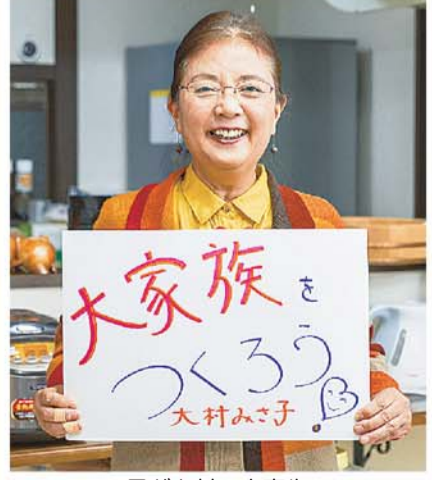 大家族を
つくろう。
大村みさ子